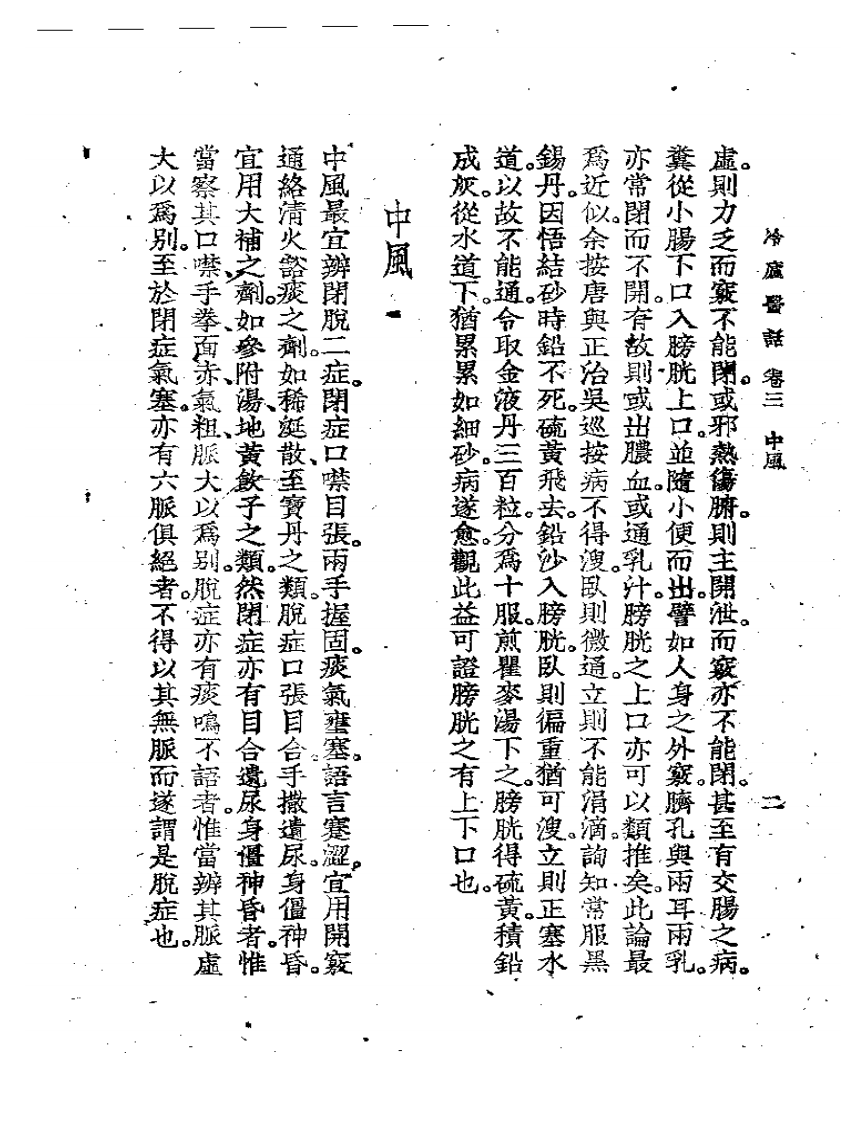 冷廬醫話 卷三 中風 二
虛。則力乏而竅不能閉。或邪熱傷腑。則主開泄。而竅亦不能閉。甚至有交腸之病。
糞從小腸下口入膀胱上口。並隨小便而出。譬如人身之外竅。臍孔與兩耳兩乳。
亦常閉而不開。有故則或出膿血。或通乳汁。膀胱之上口亦可以類推矣。此論最
爲近似。余按唐與正治吳巡按病不得溲。臥則微通。立則不能涓滴。詢知常服黑
錫丹。因悟結砂時鉛不死。硫黃飛去。鉛沙入膀胱。臥則偏重猶可溲。立則正塞水
道。以故不能通。令取金液丹三百粒。分爲十服。煎瞿麥湯下之。膀胱得硫黃。積鉛
成灰。從水道下。猶累累如細砂。病遂愈。觀此益可證膀胱之有上下口也。
中風
中風最宜辨閉脫二症。閉症口噤目張。兩手握固。痰氣壅塞。語言蹇澀。宜用開竅
通絡清火豁痰之劑。如稀涎散、至寶丹之類。脫症口張目合。手撒遺尿。身僵神昏。
宜用大補之劑。如參附湯、地黃飲子之類。然閉症亦有目合遺尿身僵神昏者。惟
當察其口噤、手拳、面赤、氣粗、脈大以爲別。脫症亦有痰鳴不語者。惟當辨其脈虛
大以爲別。至於閉症氣塞。亦有六脈俱絕者。不得以其無脈而遂謂是脫症也。